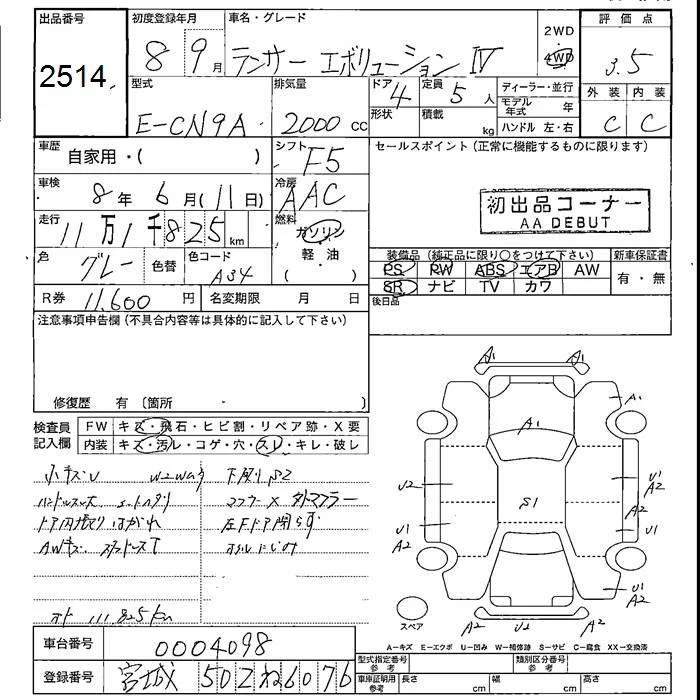 出品番号 2514
初度登録年月 8 9月
車名・グレード ランサー エボリューション IV
2WD
4WD
評価点 3.5
型式 E-CN9A
排気量 2000 CC
ドア 4
形状
定員 5 人
積載 kg
ディーラー・並行
モデル年式 年
ハンドル 左・右
外装 内装
C C
車歴 自家用・( )
シフト F5
セールスポイント(正常に機能するものに限ります)
車検 8年 6月(11日)
冷房 AAC
初出品コーナー
AA DEBUT
走行 11万1千825km
燃料 ガソリン
軽・油
( )
色 グレー 色替
色コード A34
装備品(純正品に限り○をつけて下さい) 新車保証書
PS PW ABS エアB AW
SR ナビ TV カワ
有・無
R券 11,600 円
名変期限 月 日
後日品
注意事項申告欄(不具合内容等は具体的に記入して下さい)
修復歴 有(箇所 )
検査員記入欄
FW キズ・飛石・ヒビ割・リペア跡・X要
内装 キズ・汚レ・コゲ・穴・スレ・キレ・破レ
小キズU 下廻りS2
マフラーX
ドア内張り はがれ 左Fドア閉
AWキズ
111,825km
A1 A1
A1
A1
U2
S1
U1
A2
U1
A2
U1
U1
A2
スペア
A2 U2 A2
A-キズ E-エクボ U-凹み W-補修跡 S-サビ C-腐食 XX-交換済
車台番号 0004098
登録番号 宮城 502 ね 6076
型式指定番号 参考
類別区分番号 参考
車庫証明用 参考 長さ cm 幅 cm 高さ cm